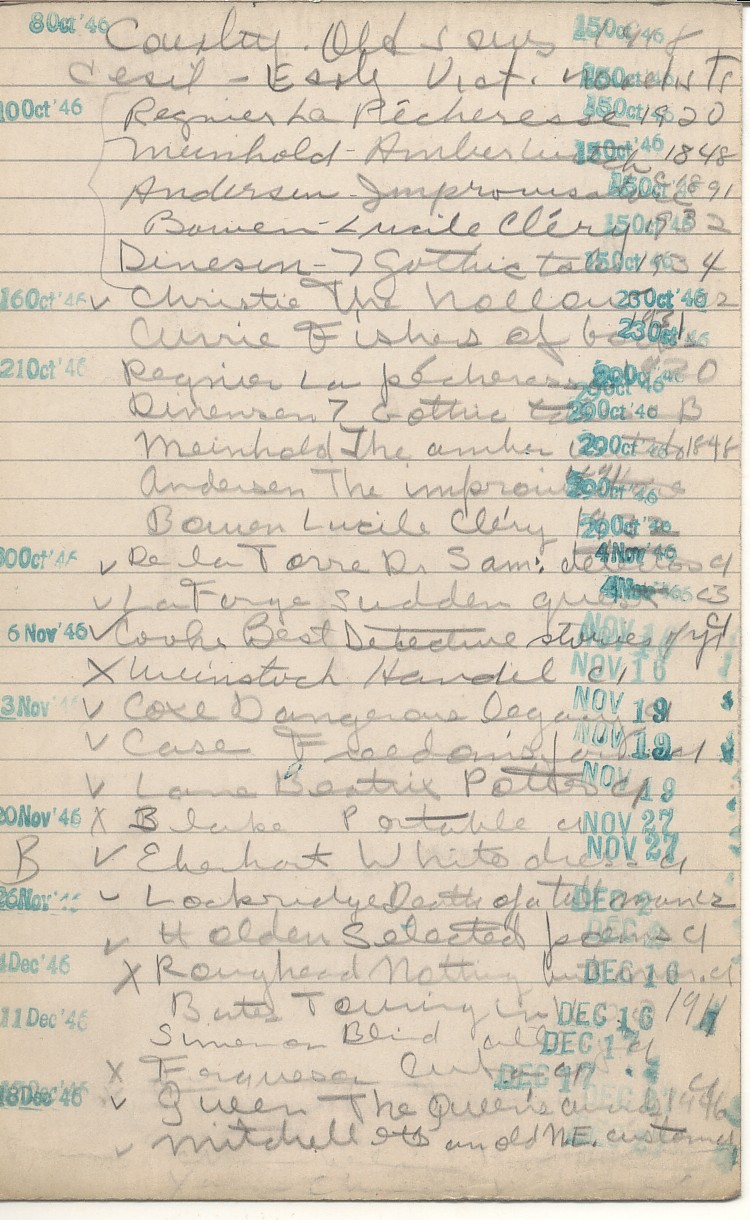 8 Oct '46 Old 15 Oct '46
Cecil - Early Vict. novelists
10 Oct '46 Regnier La Pécheresse 15 Oct '46 1920
Meinhold - Amber witch 15 Oct '46 1848
Andersen - Improvisatore 15 Oct '46 1891
Bowen - Lucile Cléry 15 Oct '46 1932
Dinesen - 7 Gothic tales 15 Oct '46 1934
16 Oct '46 ✓ Christie The hollow 23 Oct '46 c2
Currie Fishers of 23 Oct '46
21 Oct '46 Regnier La pécheresse 29 Oct '46 1920
Dinensen 7 Gothic tales 29 Oct '46 B
Meinhold The amber witch 29 Oct '46 1848
Andersen The improvisatore 29 Oct '46
Bowen Lucile Cléry 29 Oct '46
30 Oct '46 ✓ De la Torre Dr. Sam: 4 Nov '46
✓ La Farge Sudden guest 4 Nov '46 c3
6 Nov '46 ✓ Cooke Best Detective stories of yr NOV
X Weinstock Handel c1 NOV 16
13 Nov ✓ Coxe Dangerous legacy NOV 19
✓ Case Freedom's farm NOV 19 c1
✓ Lane Beatrix Potter c1 NOV 19
20 Nov '46 X Blake Portable c1 NOV 27
B ✓ Eberhart White dress c1 NOV 27
26 Nov '46 ✓ Lockridge Death of a tall man c2 DEC 2
✓ Holden Selected poems c1 DEC
4 Dec '46 X Roughead Nothing but murder c1 DEC 16
11 Dec '46 Bates Touring in DEC 16 1911
Simenon Blind alley DEC 17
X Ferguson DEC 17
18 Dec '46 ✓ Queen The Queen's awards 1946 c1
✓ Mitchell an old N.E. customs